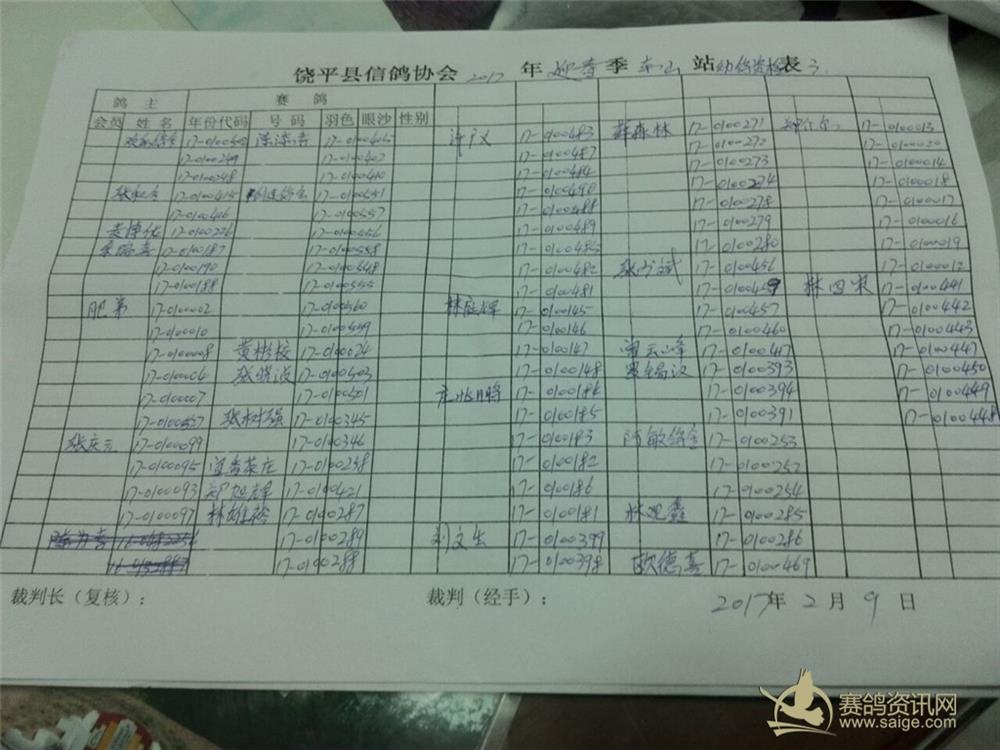 饶平县信鸽协会 2017 年 迎春 季 东山 站 幼鸽资格 表 3
鸽 主 赛 鸽
会员 姓 名 年份代码 号 码 羽色 眼沙 性别
17-0100405 许广义 17-0100483 薛森林 17-0100271 17-0100013
17-0100249 17-0100402 17-0100487 17-0100272 17-0100020
17-0100248 17-0100410 17-0100484 17-0100273 17-0100014
17-0100415 17-0100551 17-0100490 17-0100274 17-0100018
17-0100416 17-0100557 17-0100488 17-0100278 17-0100017
17-0100226 17-0100556 17-0100489 17-0100279 17-0100016
17-0100187 17-0100558 17-0100485 17-0100280 17-0100019
17-0100190 17-0100548 17-0100482 张少斌 17-0100456 17-0100012
17-0100188 17-0100555 17-0100481 17-0100459 林四农 17-0100441
肥弟 17-0100002 17-0100560 林庭辉 17-0100145 17-0100457 17-0100442
17-0100010 17-0100559 17-0100146 17-0100460 17-0100443
17-0100008 黄彬校 17-0100024 17-0100147 17-0100417 17-0100447
17-0100004 张晓波 17-0100503 17-0100148 17-0100393 17-0100450
17-0100007 17-0100501 17-0100184 17-0100394 17-0100449
17-0100557 张树强 17-0100345 17-0100185 17-0100391 17-0100448
张庆元 17-0100099 17-0100346 17-0100183 陈敏鸽舍 17-0100253
17-0100095 宜香茶庄 17-0100258 17-0100182 17-0100252
17-0100093 郑旭辉 17-0100421 17-0100186 17-0100254
17-0100097 林雄裕 17-0100287 17-0100181 林观鑫 17-0100285
17-0100289 刘文生 17-0100399 17-0100286
17-0100288 17-0100398 欧德喜 17-0100469
裁判长（复核）： 裁判（经手）： 2017年 2 月 9 日
赛鸽资讯网
www.saige.com